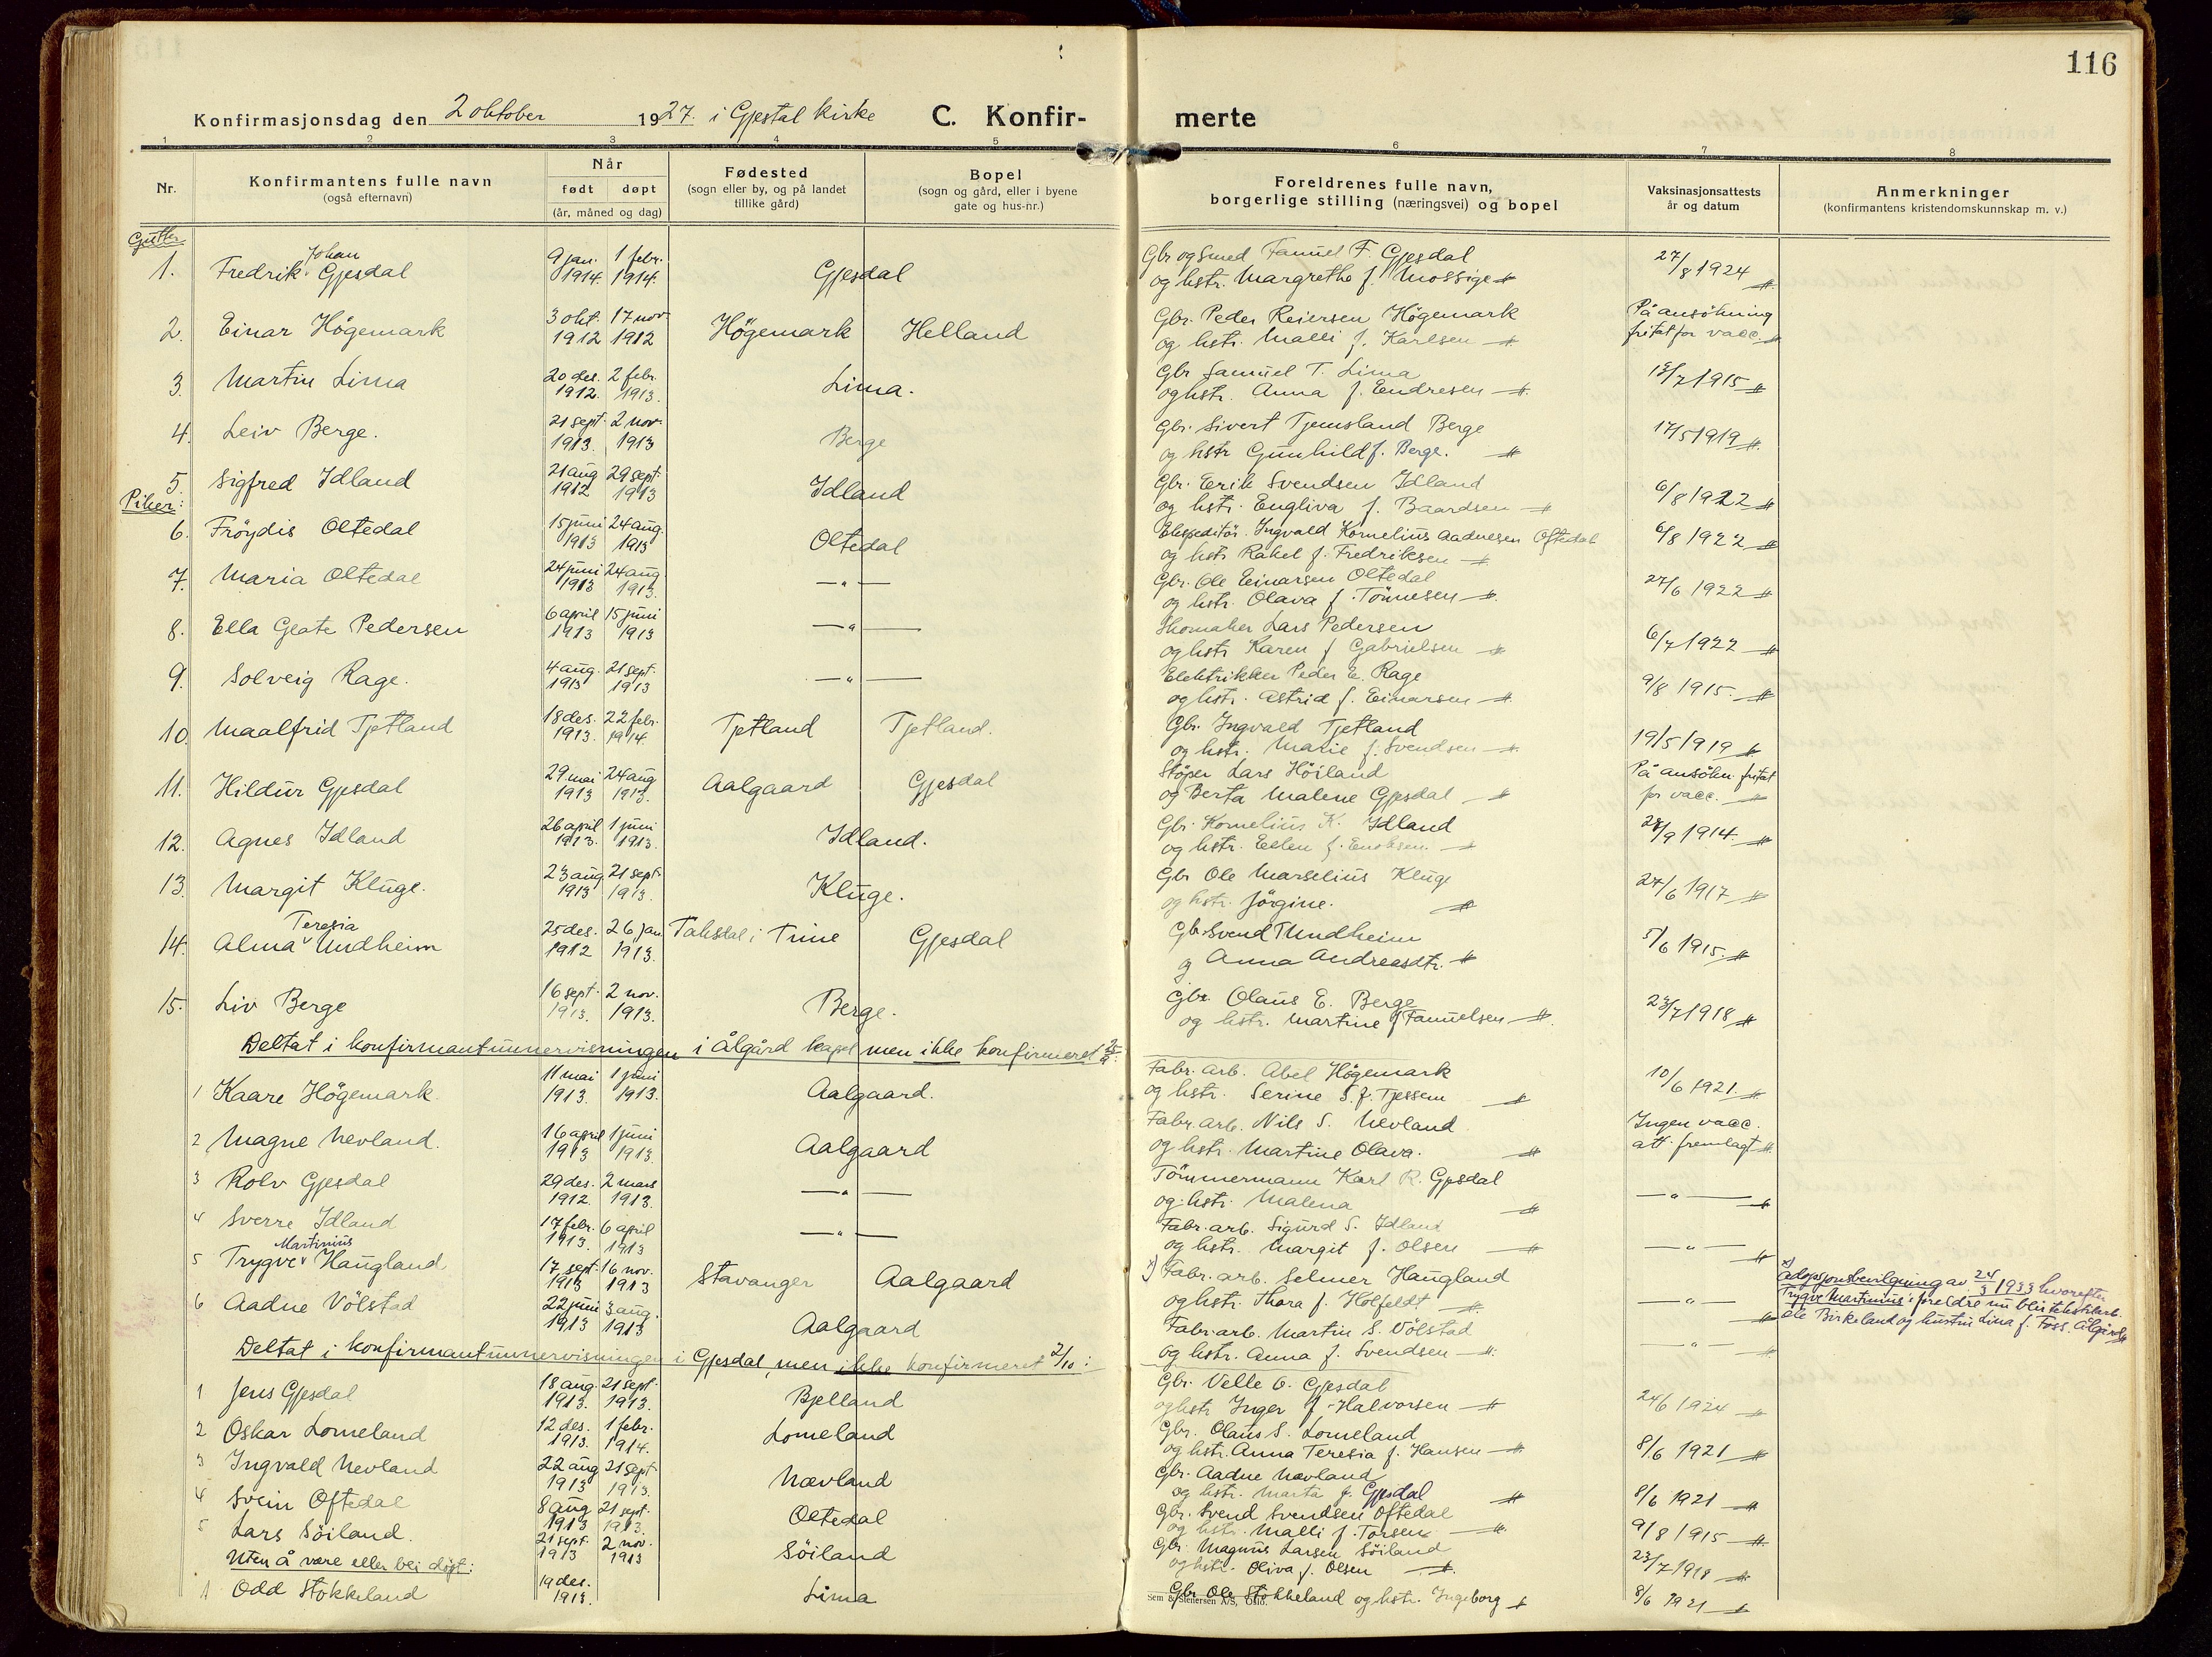 116
Konfirmasjonsdag den 2 oktober 1927. i Gjestal kirke C. Konfir- merte
1 2 3 4 5 6 7 8
Nr. Konfirmantens fulle navn (også efternavn) Når født døpt (år, måned og dag) Fødested (sogn eller by, og på landet tillike gård) Bopel (sogn og gård, eller i byene gate og hus-nr.) Foreldrenes fulle navn, borgerlige stilling (næringsvei) og bopel Vaksinasjonsattests år og datum Anmerkninger (konfirmantens kristendomskunnskap m. v.)
Gutter
1. Fredrik Johan Gjesdal 9 jan. 1914. 1 febr. 1914. Gjesdal Gbr og smed Famuel F. Gjesdal
og hstr. Margrethe f. Mossige 27/8 1924
2. Einar Högemark 3 okt. 1912 17 nov. 1912 Högemark Helland Gbr. Peder Reiersen Högemark På ansökning
og hstr. Malli f. Karlsen fritat for vacc.
3. Martin Lima 20 des. 1912. 2 febr. 1913. Lima. Gbr Samuel T. Lima
og hstr. Anna f. Endresen 13/7 1915
4. Leiv Berge. 21 sept. 1913. 2 nov. 1913 Berge Gbr. Sivert Tjemsland Berge
og hstr Gunhild f. Berge. 17/5 1919
5. Sigfred Idland 21 aug 1912 29 sept. 1913 Idland Gbr. Eerik Svendsen Idland
og hstr. Engliva f. Baardsen 6/8 1922
Piker:
6. Fröydis Oltedal 15 juni 1913 24 aug. 1913 Oltedal Ekspeditör. Ingvald Kornelius Aadnesen Oftedal
og hstr Rakel f. Fredriksen 6/8 1922
7. Maria Oltedal 24 juni 1913 24 aug. 1913. — " — Gbr. Ole Einarsen Oltedal
og hstr. Olava f. Tönnesen 27/6 1922
8. Ella Geate Pedersen 6 april 1913 15 juni 1913 — " — Skomaker Lars Pedersen
og hstr Karen f Gabrielsen 6/7 1922
9. Solveig Rage. 4 aug. 1913 21 sept. 1913 — " — Elektrikker Peder E. Rage
og hstr. Astrid f. Einarsen 9/8 1915.
10. Maalfrid Tjetland 18 des. 1913. 22 febr. 1914. Tjetland Tjetland. Gbr. Ingvald Tjetland
og hstr. Marie f. Svendsen 19/5 1919
11. Hildur Gjesdal 29 mai 1913 24 aug 1913. Aalgaard Gjesdal Stöper Lars Höiland På ansökn. fritat
og Berta Malene Gjesdal for vacc.
12. Agnes Idland 26 april 1913. 1 juni 1913. Idland. Gbr. Kornelius K. Idland
og hstr. Ellen f. Enoksen. 28/9 1914.
13. Margit Kluge. 23 aug 1913 21 sept. 1913. Kluge. Gbr Ole Marselius Kluge
og hstr. Jörgine. 27/6 1917
14. Alma Teresia Undheim 25 des. 1912 26 jan. 1913. Taksdal i Time Gjesdal Gbr. Svend T Undheim
og Anna Andreasdtr. 5/6 1915.
15. Liv Berge 16 sept. 1913. 2 nov. 1913. Berge. Gbr. Olaus E. Berge
og hstr. Martine f Famuelsen 23/7 1918
Deltat i konfirmantunnervisningen i Ålgård kapel men ikke konfirmeret 25/9:
1 Kaare Högemark. 11 mai 1913. 1 juni 1913. Aalgaard. Fabr. arb. Abel Högemark
og hstr. Serine S. f. Tjessem 10/6 1921.
2 Magne Nevland. 16 april 1913 1 juni 1913. Aalgaard Fabr. arb. Nils S. Nevland Ingen vacc.
og hstr. Martine Olava. att. fremlagt
3 Rolv Gjesdal 29 des. 1912. 2 mars 1913. — " — Tömmermann Karl R. Gjesdal
og hstr. Malena — " —
4 Sverre Idland 17 febr. 1913. 6 april 1913 — " — Fabr. arb. Sigurd S. Idland
og hstr. Margit f. Olsen — " —
5 Trygve Martinius Haugland 17 sept. 1913 16 nov. 1913 Stavanger Aalgaard x) Fabr. arb. Selmer Haugland
og hstr. Thora f. Holfeldt — " —
x) Adopsjonsbevilgning av 24/3 1933 hvorefter
Trygve Martinius' foreldre nu blir tekstilarb.
Ole Birkeland og hustru Lina f. Foss. Ålgård
6 Aadne Völstad 22 juni 1913 3 aug. 1913 Aalgaard Fabr. arb. Martin S. Völstad
og hstr. Anna f. Svendsen — " —
Deltat i konfirmantunnervisningen i Gjesdal, men ikke konfirmeret 2/10:
1 Jens Gjesdal 18 aug. 1913. 21 sept. 1913. Bjelland Gbr. Velle O. Gjesdal
og hstr Inger f. Halvorsen 24/6 1924
2 Oskar Lomeland 12 des. 1913. 1 febr. 1914. Lomeland Gbr. Olaus S. Lomeland
og hstr. Anna Teresia f. Hansen 8/6 1921
3 Ingvald Nevland 22 aug 1913 21 sept 1913. Nævland Gbr. Aadne Nævland
og hstr. Marta f. Gjesdal 8/6 1921
4 Svein Oftedal 8 aug 1913 21 sept. 1913. Oltedal Gbr. Svend Svendsen Oftedal
og hstr. Malli f. Torsen 9/8 1915
5 Lars Söiland. 21 sept. 1913 2 nov. 1913 Söiland Gbr. Magnus Larsen Söiland
og hstr. Oliva f. Olsen 23/7 1918
Uten å være eller bli döpt:
1 Odd Stokkeland 19 des. 1913. Lima Gbr. Ole Stokkeland og hstr. Ingeborg 8/6 1921
Sem & Stenersen A/S, Oslo.